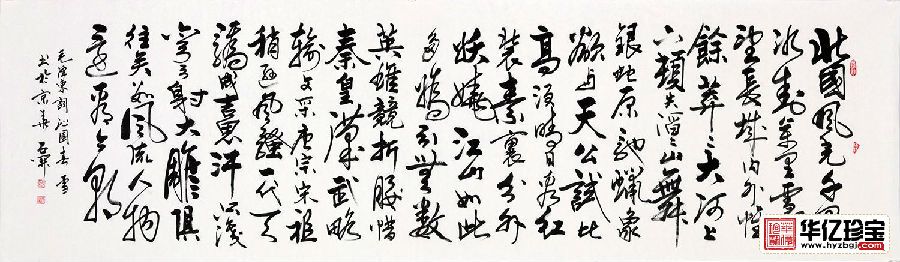 北國風光千里
冰封萬里雪
望長城内外惟
餘莽〻大河上
下頓失滔〻山舞
銀蛇原馳蠟象
欲与天公試比
高須晴日看紅
裝素裹分外
妖嬈江山如此
多嬌引無數
英雄競折腰惜
秦皇漢武略
輸文采唐宗宋祖
稍遜風騷一代天
驕成吉思汗只識
彎弓射大雕俱
往矣數風流人物
還看今朝
毛澤東詞沁園春雪
书於京華
华亿珍宝
www.hyzbgj.com